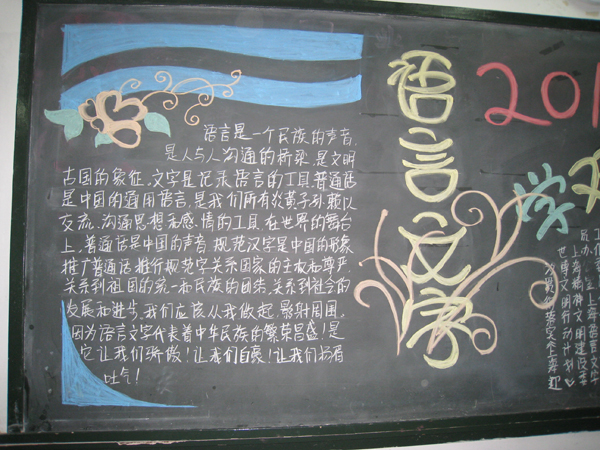 语言是一个民族的声音,
是人与人沟通的桥梁.是文明
古国的象征,文字是记录语言的工具普通话
是中国的通用语言,是我们所有炎黄子孙赖以
交流、沟通思想和感情的工具.在世界的舞台
上,普通话是中国的声音 规范汉字是中国的形象
推广普通话 推行规范字关系国家的主权和尊严
关系到祖国的统一和民族的团结,关系到社会的
发展和进步,我们应该从我做起,影射周围,
因为语言文字代表着中华民族的繁荣昌盛!是
它让我们骄傲!让我们自豪!让我们扬眉
吐气!
语言文字
201
学